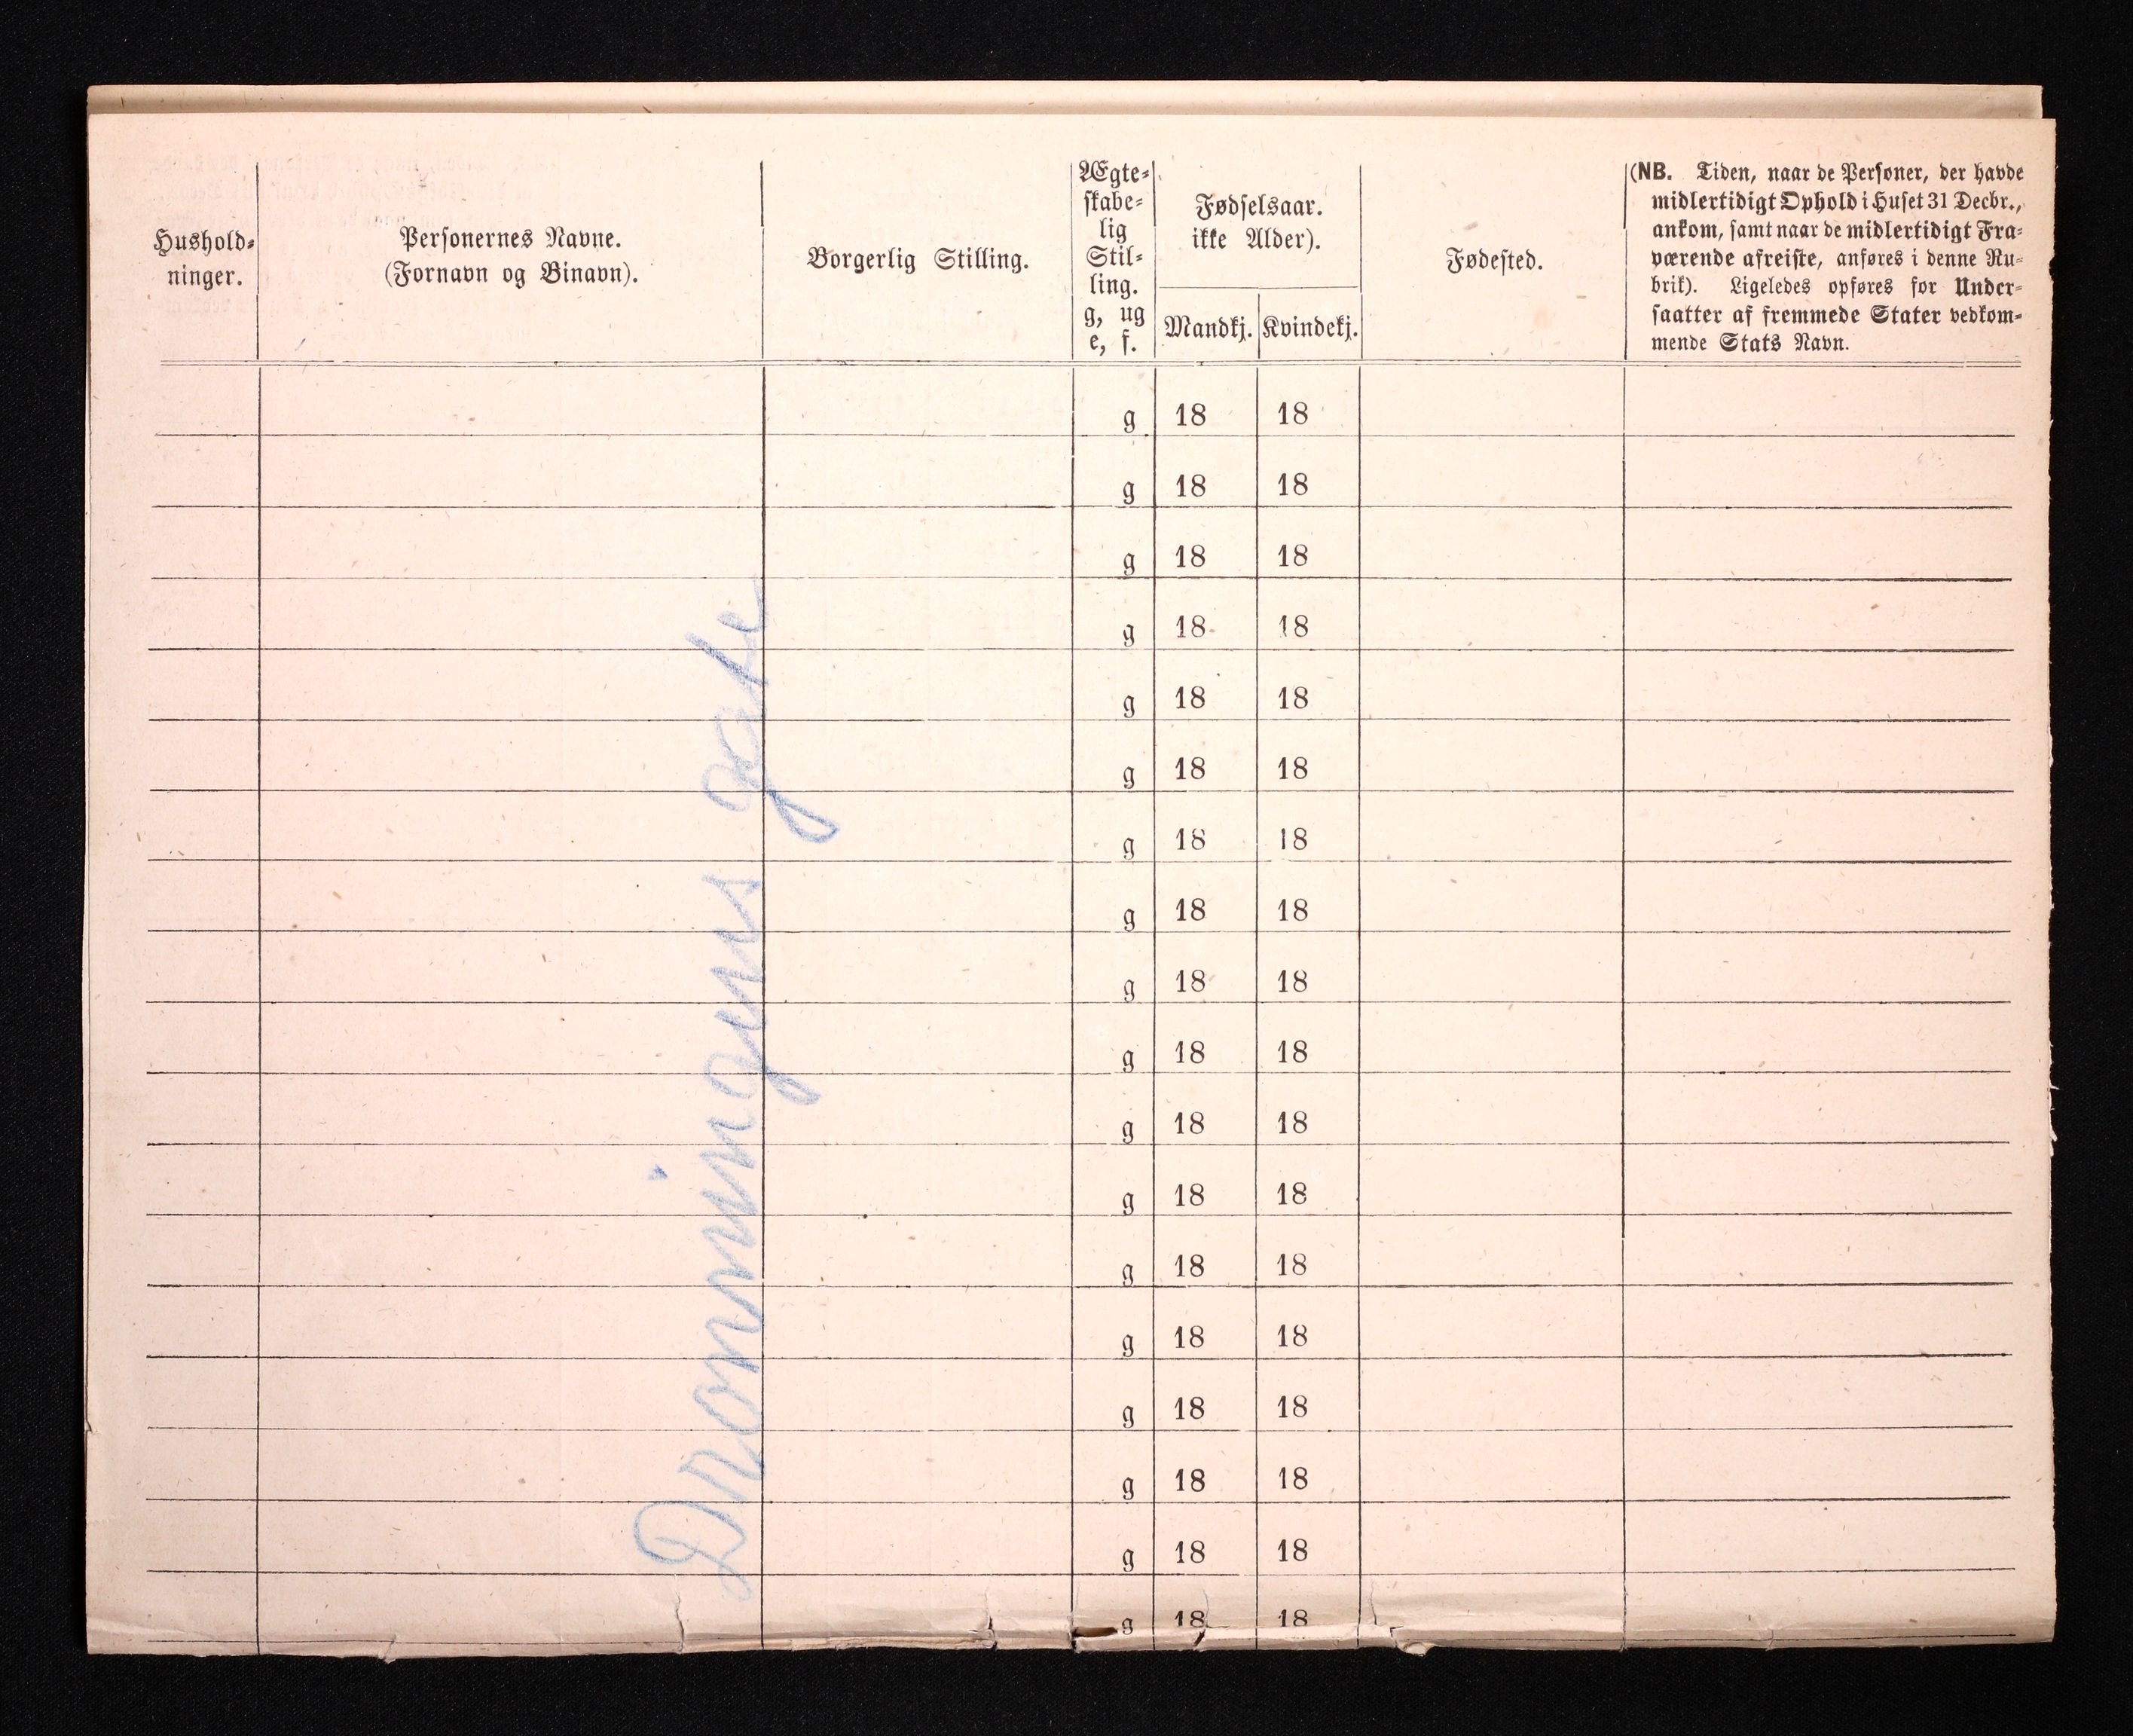 Hushold-
ninger.
Personernes Navne.
(Fornavn og Binavn).
Borgerlig Stilling.
Ægte-
skabe-
lig
Stil-
ling.
g, ug
e, f.
Fødselsaar.
ikke Alder).
Mandkj. Kvindekj.
Fødested.
(NB. Tiden, naar de Personer, der havde
midlertidigt Ophold i Huset 31 Decbr.,
ankom, samt naar de midlertidigt Fra-
værende afreiste, anføres i denne Ru-
brik). Ligeledes opføres for Under-
saatter af fremmede Stater vedkom-
mende Stats Navn.
g 18 18
g 18 18
g 18 18
g 18 18
g 18 18
g 18 18
g 18 18
g 18 18
g 18 18
g 18 18
g 18 18
g 18 18
g 18 18
g 18 18
g 18 18
g 18 18
g 18 18
g 18 18
Dronningens gate